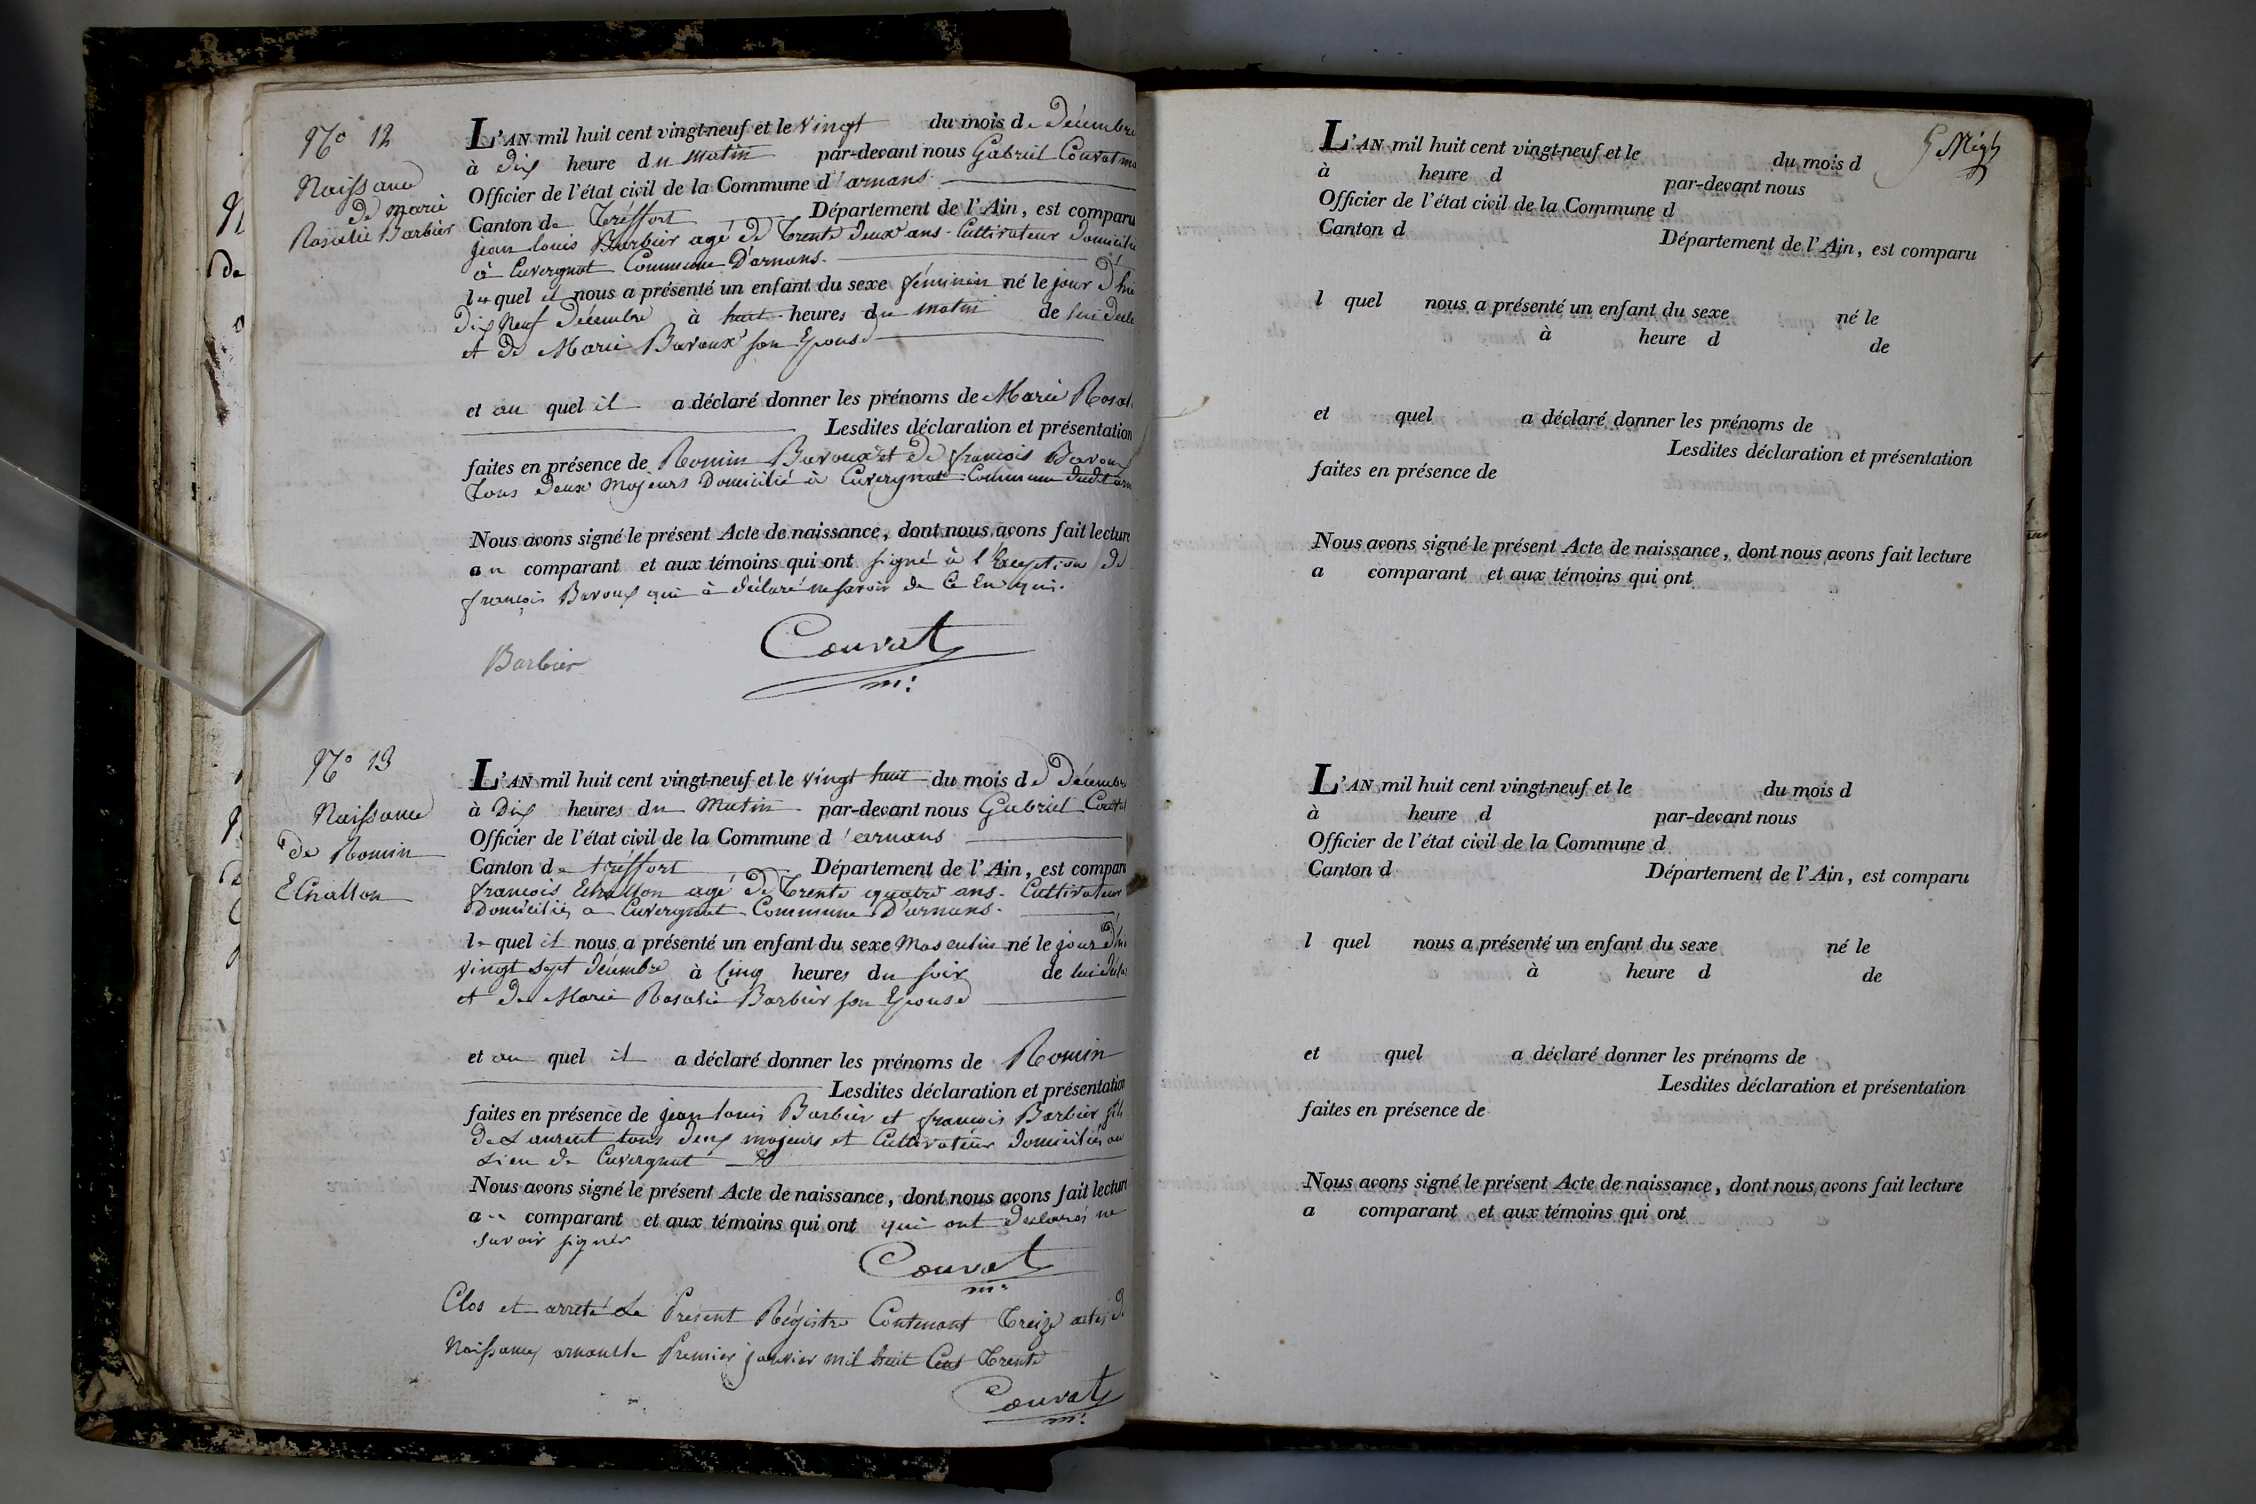 No 12
Naissance
de marie
Rosalie Barbier
L'AN mil huit cent vingt-neuf et le vingt du mois de Décembre
à Dix heure du matin par-devant nous Gabriel Couvat
Officier de l'état civil de la Commune d'arnans
Canton de Tréffort Département de l'Ain, est comparu
jean louis Barbier agé de Trente deux ans Cultivateur Domicilié
à Cuvergnat Commune D'arnans.
lequel et nous a présenté un enfant du sexe féminin né le jour D'hie
Dix Neuf Décembre à huit heures du matin de lui
et De Marie Bavoux son Epouse
et au quel il a déclaré donner les prénoms de Marie Rosal
Lesdites déclaration et présentation
faites en présence de Romin Bavoux et De françois Bavoux
Tous Deux Majeurs Domicilié à Cuvergnat Commune dudit arn
Nous avons signé le présent Acte de naissance, dont nous avons fait lecture
au comparant et aux témoins qui ont signé à l'Exception De
françois Bavoux qui à déclaré ne savoir de Ce En quis.
Barbier
Couvat
m:
No 13
Naissance
de Romin
Echallon
L'AN mil huit cent vingt-neuf et le vingt huit du mois de Décembre
à Dix heures du Matin par-devant nous Gabriel Couvat
Officier de l'état civil de la Commune d'arnans
Canton de tréffort Département de l'Ain, est comparu
françois Echallon agé de Trente quatre ans. Cultivateur
Domiciliés a Cuvergnat Commune D'arnans.
lequel il nous a présenté un enfant du sexe Masculin né le jour d'hie
vingt sept Décembre à Cinq heures du soir de lui
et De Marie Rosalie Barbier son Epouse
et au quel il a déclaré donner les prénoms de Romin
Lesdites déclaration et présentation
faites en présence de jean louis Barbier et françois Barbier fils
De Laurent tous deux majeurs et Cultivateur domiciliés au
Lieu de Cuvergnat
Nous avons signé le présent Acte de naissance, dont nous avons fait lecture
au comparant et aux témoins qui ont qui ont declarés ne
savoir signer
Couvat
m:
Clos et arreté Le Présent Régistre Contenant Treize actes de
Naissances arnans le Premier janvier mil huit Cent Trente
Couvat
m:
L'AN mil huit cent vingt-neuf et le du mois d
à heure d par-devant nous
Officier de l'état civil de la Commune d
Canton d Département de l'Ain, est comparu
l quel nous a présenté un enfant du sexe né le
à heure d de
et quel a déclaré donner les prénoms de
Lesdites déclaration et présentation
faites en présence de
Nous avons signé le présent Acte de naissance, dont nous avons fait lecture
a comparant et aux témoins qui ont
L'AN mil huit cent vingt-neuf et le du mois d
à heure d par-devant nous
Officier de l'état civil de la Commune d
Canton d Département de l'Ain, est comparu
l quel nous a présenté un enfant du sexe né le
à heure d de
et quel a déclaré donner les prénoms de
Lesdites déclaration et présentation
faites en présence de
Nous avons signé le présent Acte de naissance, dont nous avons fait lecture
a comparant et aux témoins qui ont